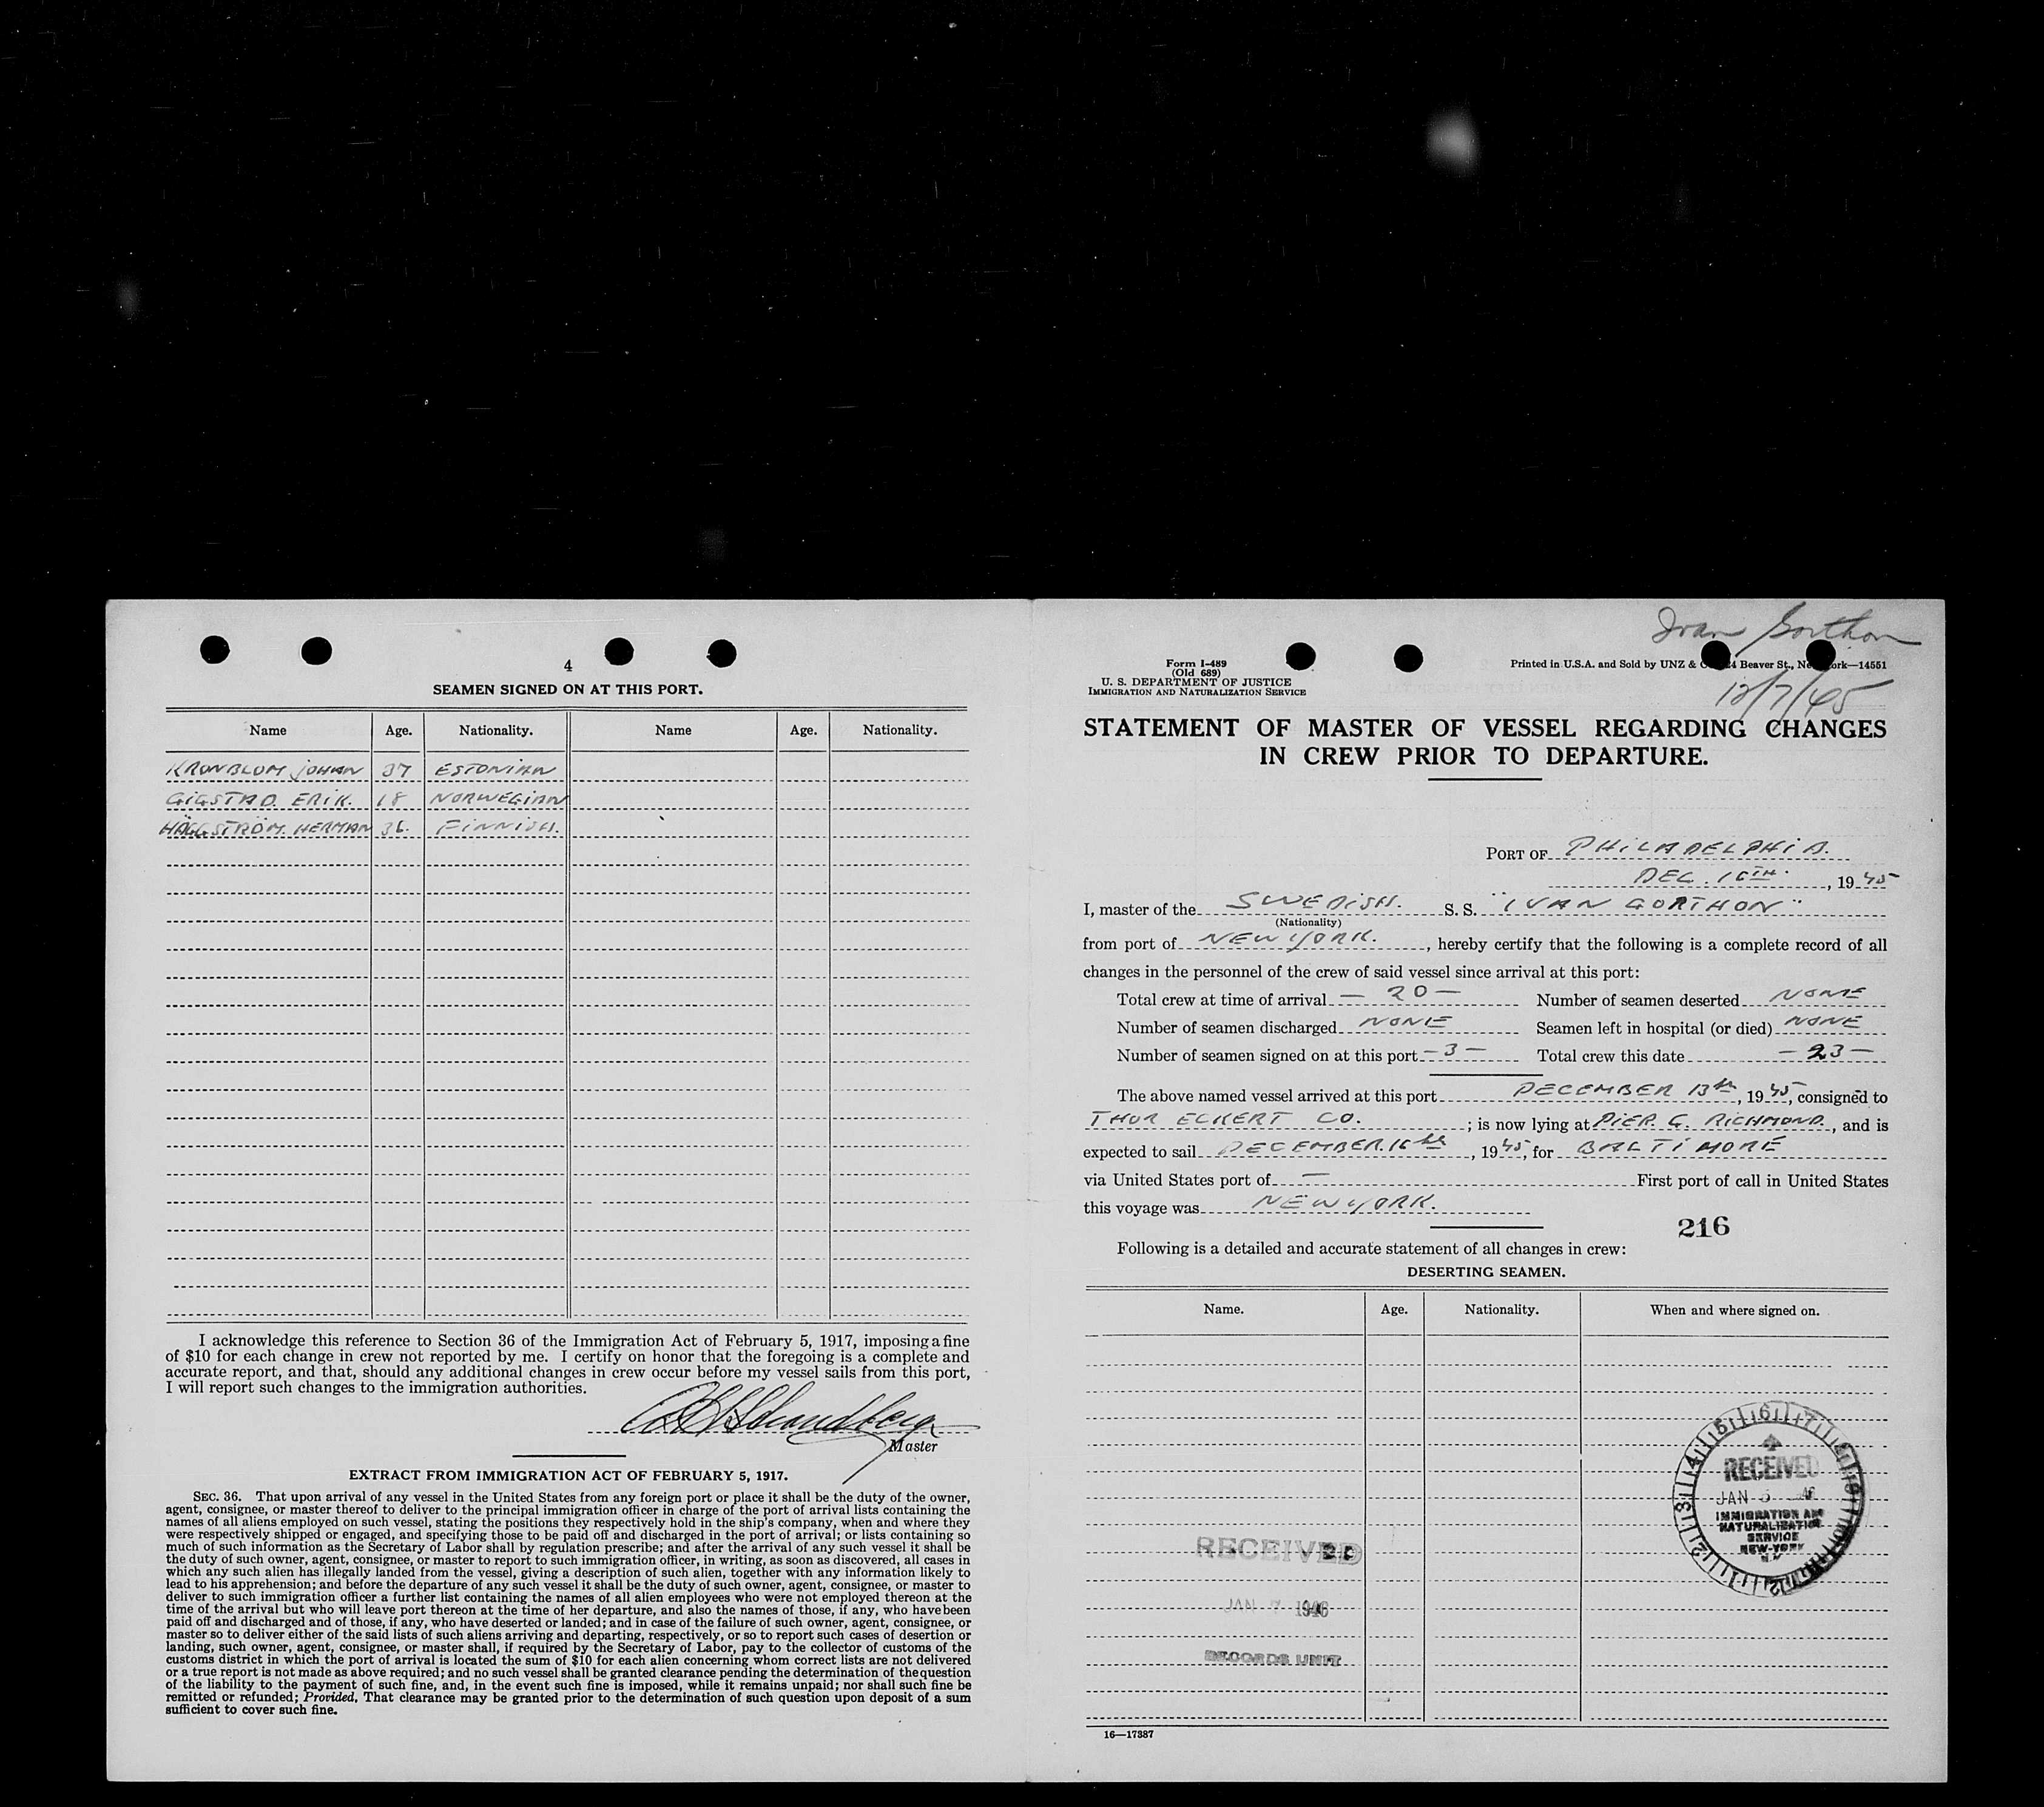 4
SEAMEN SIGNED ON AT THIS PORT.
Name Age. Nationality. Name Age. Nationality.
KRONBLOM JOHAN 37 ESTONIAN
GIGSTAD. ERIK. 18 NORWEGIAN
HÄGGSTRÖM. HERMAN 36. FINNISH.
I acknowledge this reference to Section 36 of the Immigration Act of February 5, 1917, imposing a fine
of $10 for each change in crew not reported by me. I certify on honor that the foregoing is a complete and
accurate report, and that, should any additional changes in crew occur before my vessel sails from this port,
I will report such changes to the immigration authorities.
Master
EXTRACT FROM IMMIGRATION ACT OF FEBRUARY 5, 1917.
SEC. 36. That upon arrival of any vessel in the United States from any foreign port or place it shall be the duty of the owner,
agent, consignee, or master thereof to deliver to the principal immigration officer in charge of the port of arrival lists containing the
names of all aliens employed on such vessel, stating the positions they respectively hold in the ship's company, when and where they
were respectively shipped or engaged, and specifying those to be paid off and discharged in the port of arrival; or lists containing so
much of such information as the Secretary of Labor shall by regulation prescribe; and after the arrival of any such vessel it shall be
the duty of such owner, agent, consignee, or master to report to such immigration officer, in writing, as soon as discovered, all cases in
which any such alien has illegally landed from the vessel, giving a description of such alien, together with any information likely to
lead to his apprehension; and before the departure of any such vessel it shall be the duty of such owner, agent, consignee, or master to
deliver to such immigration officer a further list containing the names of all alien employees who were not employed thereon at the
time of the arrival but who will leave port thereon at the time of her departure, and also the names of those, if any, who have been
paid off and discharged and of those, if any, who have deserted or landed; and in case of the failure of such owner, agent, consignee, or
master so to deliver either of the said lists of such aliens arriving and departing, respectively, or so to report such cases of desertion or
landing, such owner, agent, consignee, or master shall, if required by the Secretary of Labor, pay to the collector of customs of the
customs district in which the port of arrival is located the sum of $10 for each alien concerning whom correct lists are not delivered
or a true report is not made as above required; and no such vessel shall be granted clearance pending the determination of the question
of the liability to the payment of such fine, and, in the event such fine is imposed, while it remains unpaid; nor shall such fine be
remitted or refunded; Provided, That clearance may be granted prior to the determination of such question upon deposit of a sum
sufficient to cover such fine.
Ivan Gorthon
Form I-489
(Old 689)
U. S. DEPARTMENT OF JUSTICE
IMMIGRATION AND NATURALIZATION SERVICE
Printed in U.S.A. and Sold by UNZ & Beaver St., —14551
12/7/45
STATEMENT OF MASTER OF VESSEL REGARDING CHANGES
IN CREW PRIOR TO DEPARTURE.
PORT OF PHILADELPHIA.
DEC. 16TH. , 19 45
I, master of the SWEDISH. S. S. "IVAN GORTHON"
(Nationality)
from port of NEW YORK. , hereby certify that the following is a complete record of all
changes in the personnel of the crew of said vessel since arrival at this port:
Total crew at time of arrival — 20 — Number of seamen deserted NONE
Number of seamen discharged NONE Seamen left in hospital (or died) NONE
Number of seamen signed on at this port — 3 — Total crew this date — 23 —
The above named vessel arrived at this port DECEMBER 13th, 1945, consigned to
THOR ECKERT CO. ; is now lying at PIER. G. RICHMOND., and is
expected to sail DECEMBER. 16th , 1945, for BALTIMORE
via United States port of — First port of call in United States
this voyage was NEW YORK.
216
Following is a detailed and accurate statement of all changes in crew:
DESERTING SEAMEN.
Name. Age. Nationality. When and where signed on.
RECEIVED
JAN 5
IMMIGRATION AND
NATURALIZATION
SERVICE
NEW-YORK
N.Y.
RECEIVED
JAN 7 1946
RECORDS UNIT
16—17387